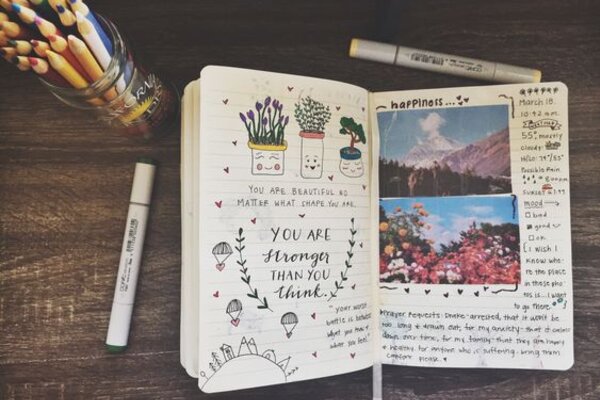 YOU ARE BEAUTIFUL NO
MATTER WHAT SHAPE YOU ARE.
YOU ARE
stronger
THAN YOU
think.
"your worst
battle is between
what you know &
what you feel."
happiness...
March 18.
10:42 a.m.
55°, mostly
cloudy.
Hi/Lo: 79°/55°
Possible Rain
Sunset @
mood
bad
good
ok
I wish I
knew whe-
re the place
in these pho-
tos is... I want
to go there
Prayer Requests: Drake-arrested, that it won't be
too long & drawn out, for my anxiety- that it calms
down over time, for my family- that they are happy
& healthy, for anyone who is suffering- bring them
comfort please.